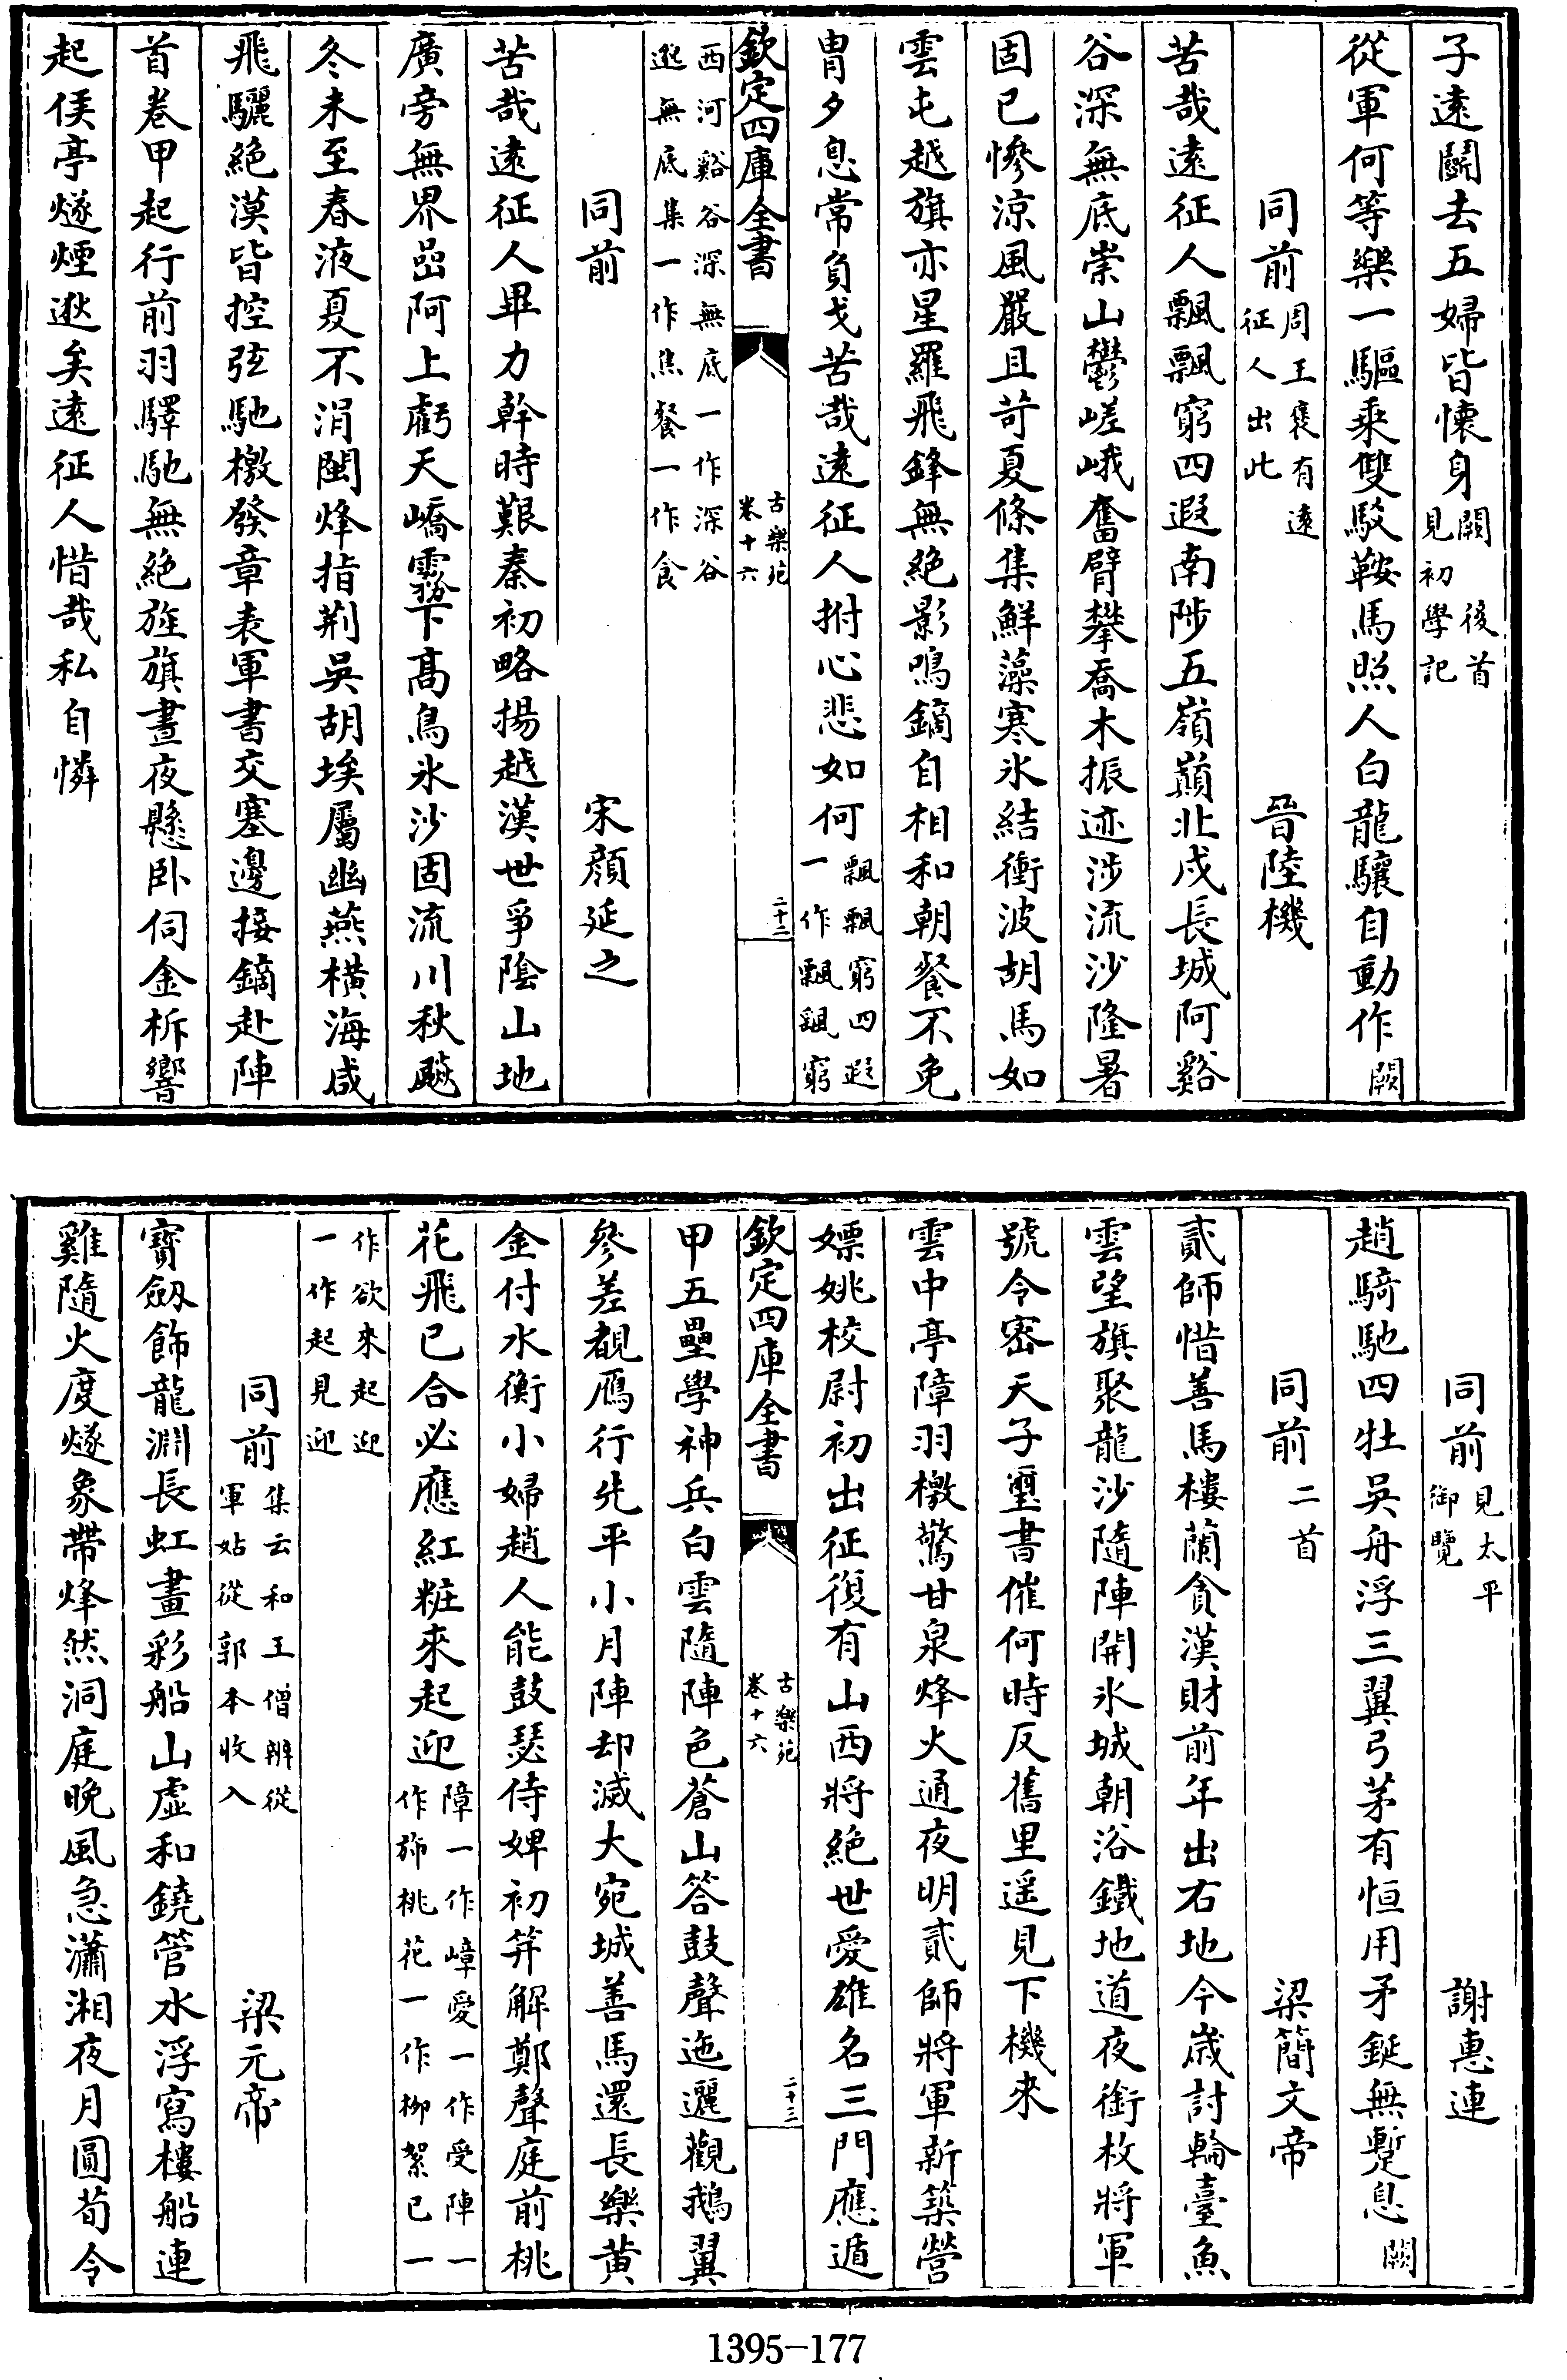 子遠鬭去五婦皆懷身闕 後首見初學記
從軍何等樂一驅乘雙駁鞍馬照人白龍驤自動作闕
同前周王襃有遠征人出此 晉陸機
苦哉遠征人飄飄窮四遐南陟五嶺巔北戍長城阿谿
谷深無底崇山鬱嵯峨奮臂攀喬木振迹涉流沙隆暑
固已慘涼風嚴且苛夏條集鮮藻寒氷結衝波胡馬如
雲屯越旗亦星羅飛鋒無絶影鳴鏑自相和朝餐不免
胄夕息常負戈苦哉遠征人拊心悲如何飄飄窮四遐一作飄飖窮
欽定四庫全書 古樂苑卷十六 二十二
西河谿谷深無底一作深谷邈無底集一作焦餐一作食
同前 宋顔延之
苦哉遠征人畢力幹時艱秦初略揚越漢世爭陰山地
廣旁無界嵒阿上虧天嶠霧下高鳥氷沙固流川秋飈
冬未至春液夏不涓閩烽指荆吳胡埃屬幽燕橫海咸
飛驪絶漠皆控弦馳檄發章表軍書交塞邊接鏑赴陣
首卷甲起行前羽驛馳無絶旌旗晝夜懸卧伺金柝響
起候亭燧煙逖矣遠征人惜哉私自憐
同前見太平御覽 謝惠連
趙騎馳四牡吳舟浮三翼弓茅有恒用矛鋋無蹔息闕
同前二首 梁簡文帝
貳師惜善馬樓蘭貪漢財前年出右地今歲討輪臺魚
雲望旗聚龍沙隨陣開氷城朝浴鐵地道夜銜枚將軍
號令密天子璽書催何時反舊里遥見下機來
雲中亭障羽檄驚甘泉烽火通夜明貳師將軍新築營
嫖姚校尉初出征復有山西將絶世愛雄名三門應遁
欽定四庫全書 古樂苑卷十六 二十三
甲五壘學神兵白雲隨陣色蒼山答鼓聲迤邐觀鵝翼
參差覩鴈行先平小月陣却滅大宛城善馬還長樂黄
金付水衡小婦趙人能鼓瑟侍婢初笄解鄭聲庭前桃
花飛已合必應紅粧來起迎障一作嶂愛一作受陣一作斾桃花一作柳絮已一
作欲來起迎一作起見迎
同前集云和王僧辨從軍姑從郭本收入 梁元帝
寳劔飾龍淵長虹畫彩船山虛和鐃管水浮寫樓船連
雞隨火度燧象帶烽然洞庭晚風急瀟湘夜月圓荀令
1395-177